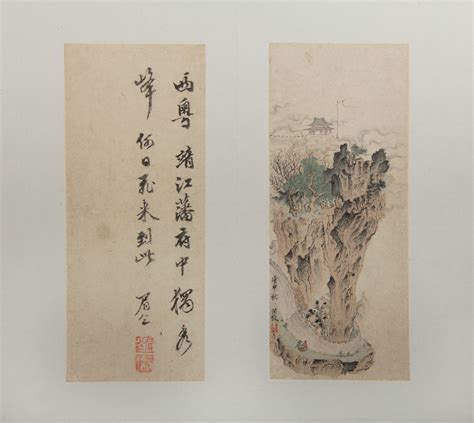 西粵靖江藩府中獨秀
峰何日飛來到此 眉公